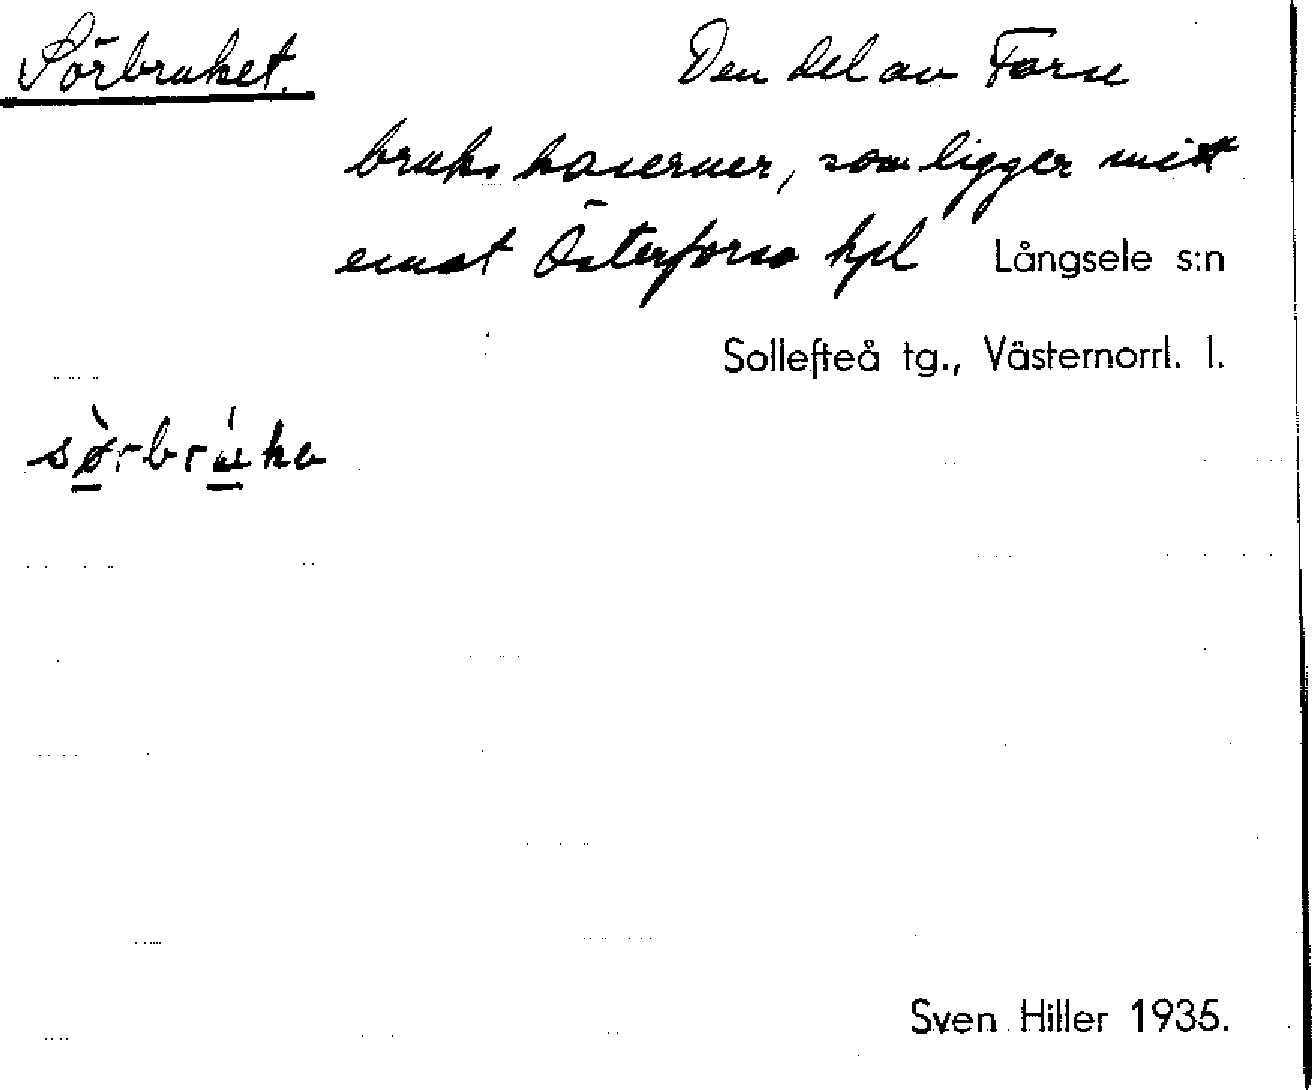 Sörbruket. Den del av Forse
bruks kaserner, som ligger mitt
emot Österforse hpl Långsele s:n
Sollefteå tg., Västernorrl. l.
sø̀rbrúka
Sven Hiller 1935.